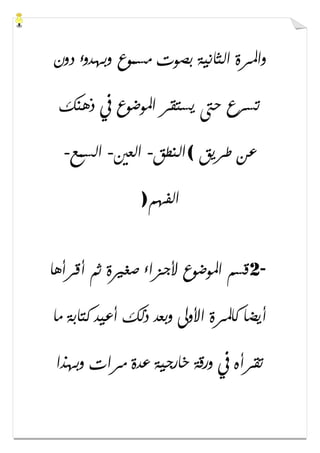 والمرة الثانية بصوت مسموع وبهدوء دون
تسرع حتى يستقر الموضوع في ذهنك
عن طريق ( النطق- العين- السمع-
الفهم(
-2قسم الموضوع لأجزاء صغيرة ثم أقرأها
أيضا كالمرة الأولى وبعد ذلك أعيد كتابة ما
تقرأه في ورقة خارجية عدة مرات وبهذا